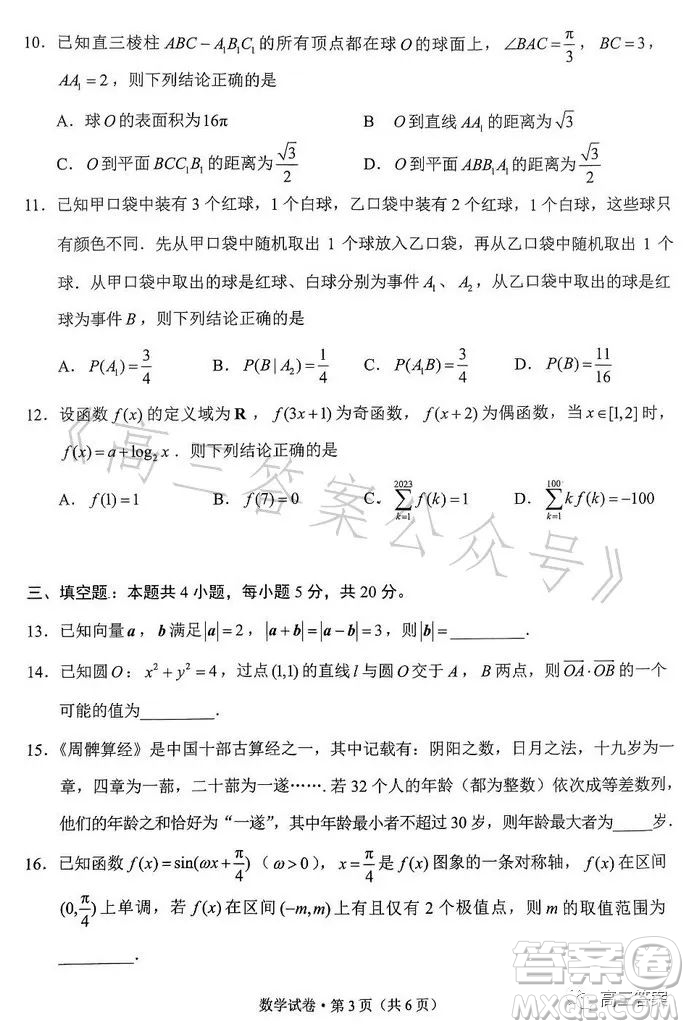 10．已知直三棱柱 ABC－A₁B₁C₁ 的所有顶点都在球 O 的球面上，∠BAC=π/3，BC=3，
AA₁=2，则下列结论正确的是
A．球 O 的表面积为16π　B　O 到直线 AA₁ 的距离为√3
C．O 到平面 BCC₁B₁ 的距离为√3/2　D．O 到平面 ABB₁A₁ 的距离为√3/2
11．已知甲口袋中装有 3 个红球，1 个白球，乙口袋中装有 2 个红球，1 个白球，这些球只
有颜色不同．先从甲口袋中随机取出 1 个球放入乙口袋，再从乙口袋中随机取出 1 个
球．从甲口袋中取出的球是红球、白球分别为事件 A₁、A₂，从乙口袋中取出的球是红
球为事件 B，则下列结论正确的是
A．P(A₁)=3/4　B．P(B|A₂)=1/4　C．P(A₁B)=3/4　D．P(B)=11/16
12．设函数 f(x) 的定义域为 R，f(3x+1) 为奇函数，f(x+2) 为偶函数，当 x∈[1,2] 时，
f(x)=a+log₂x．则下列结论正确的是
A．f(1)=1　B．f(7)=0　C．∑_{k=1}^{2023} f(k)=1　D．∑_{k=1}^{100} kf(k)=−100
三、填空题：本题共 4 小题，每小题 5 分，共 20 分。
13．已知向量 a，b 满足|a|=2，|a+b|=|a−b|=3，则|b|=________．
14．已知圆 O：x²+y²=4，过点 (1,1) 的直线 l 与圆 O 交于 A，B 两点，则 OA·OB 的一个
可能的值为________．
15．《周髀算经》是中国十部古算经之一，其中记载有：阴阳之数，日月之法，十九岁为一
章，四章为一蔀，二十蔀为一遂……．若 32 个人的年龄（都为整数）依次成等差数列，
他们的年龄之和恰好为“一遂”，其中年龄最小者不超过 30 岁，则年龄最大者为_____岁．
16．已知函数 f(x)=sin(ωx+π/4)（ω>0），x=π/4 是 f(x) 图象的一条对称轴，f(x) 在区间
(0,π/4) 上单调，若 f(x) 在区间 (−m,m) 上有且仅有 2 个极值点，则 m 的取值范围为
________．
数学试卷·第 3 页（共 6 页）
《高三答案公众号》
高三答案
答案圈
MXQE.COM